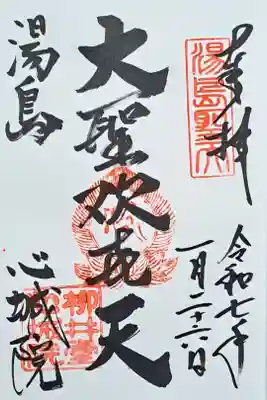 奉拝
湯島聖天
令和七年
一月二十六日
大聖歓喜天
湯島
心城院
柳井堂
心城院